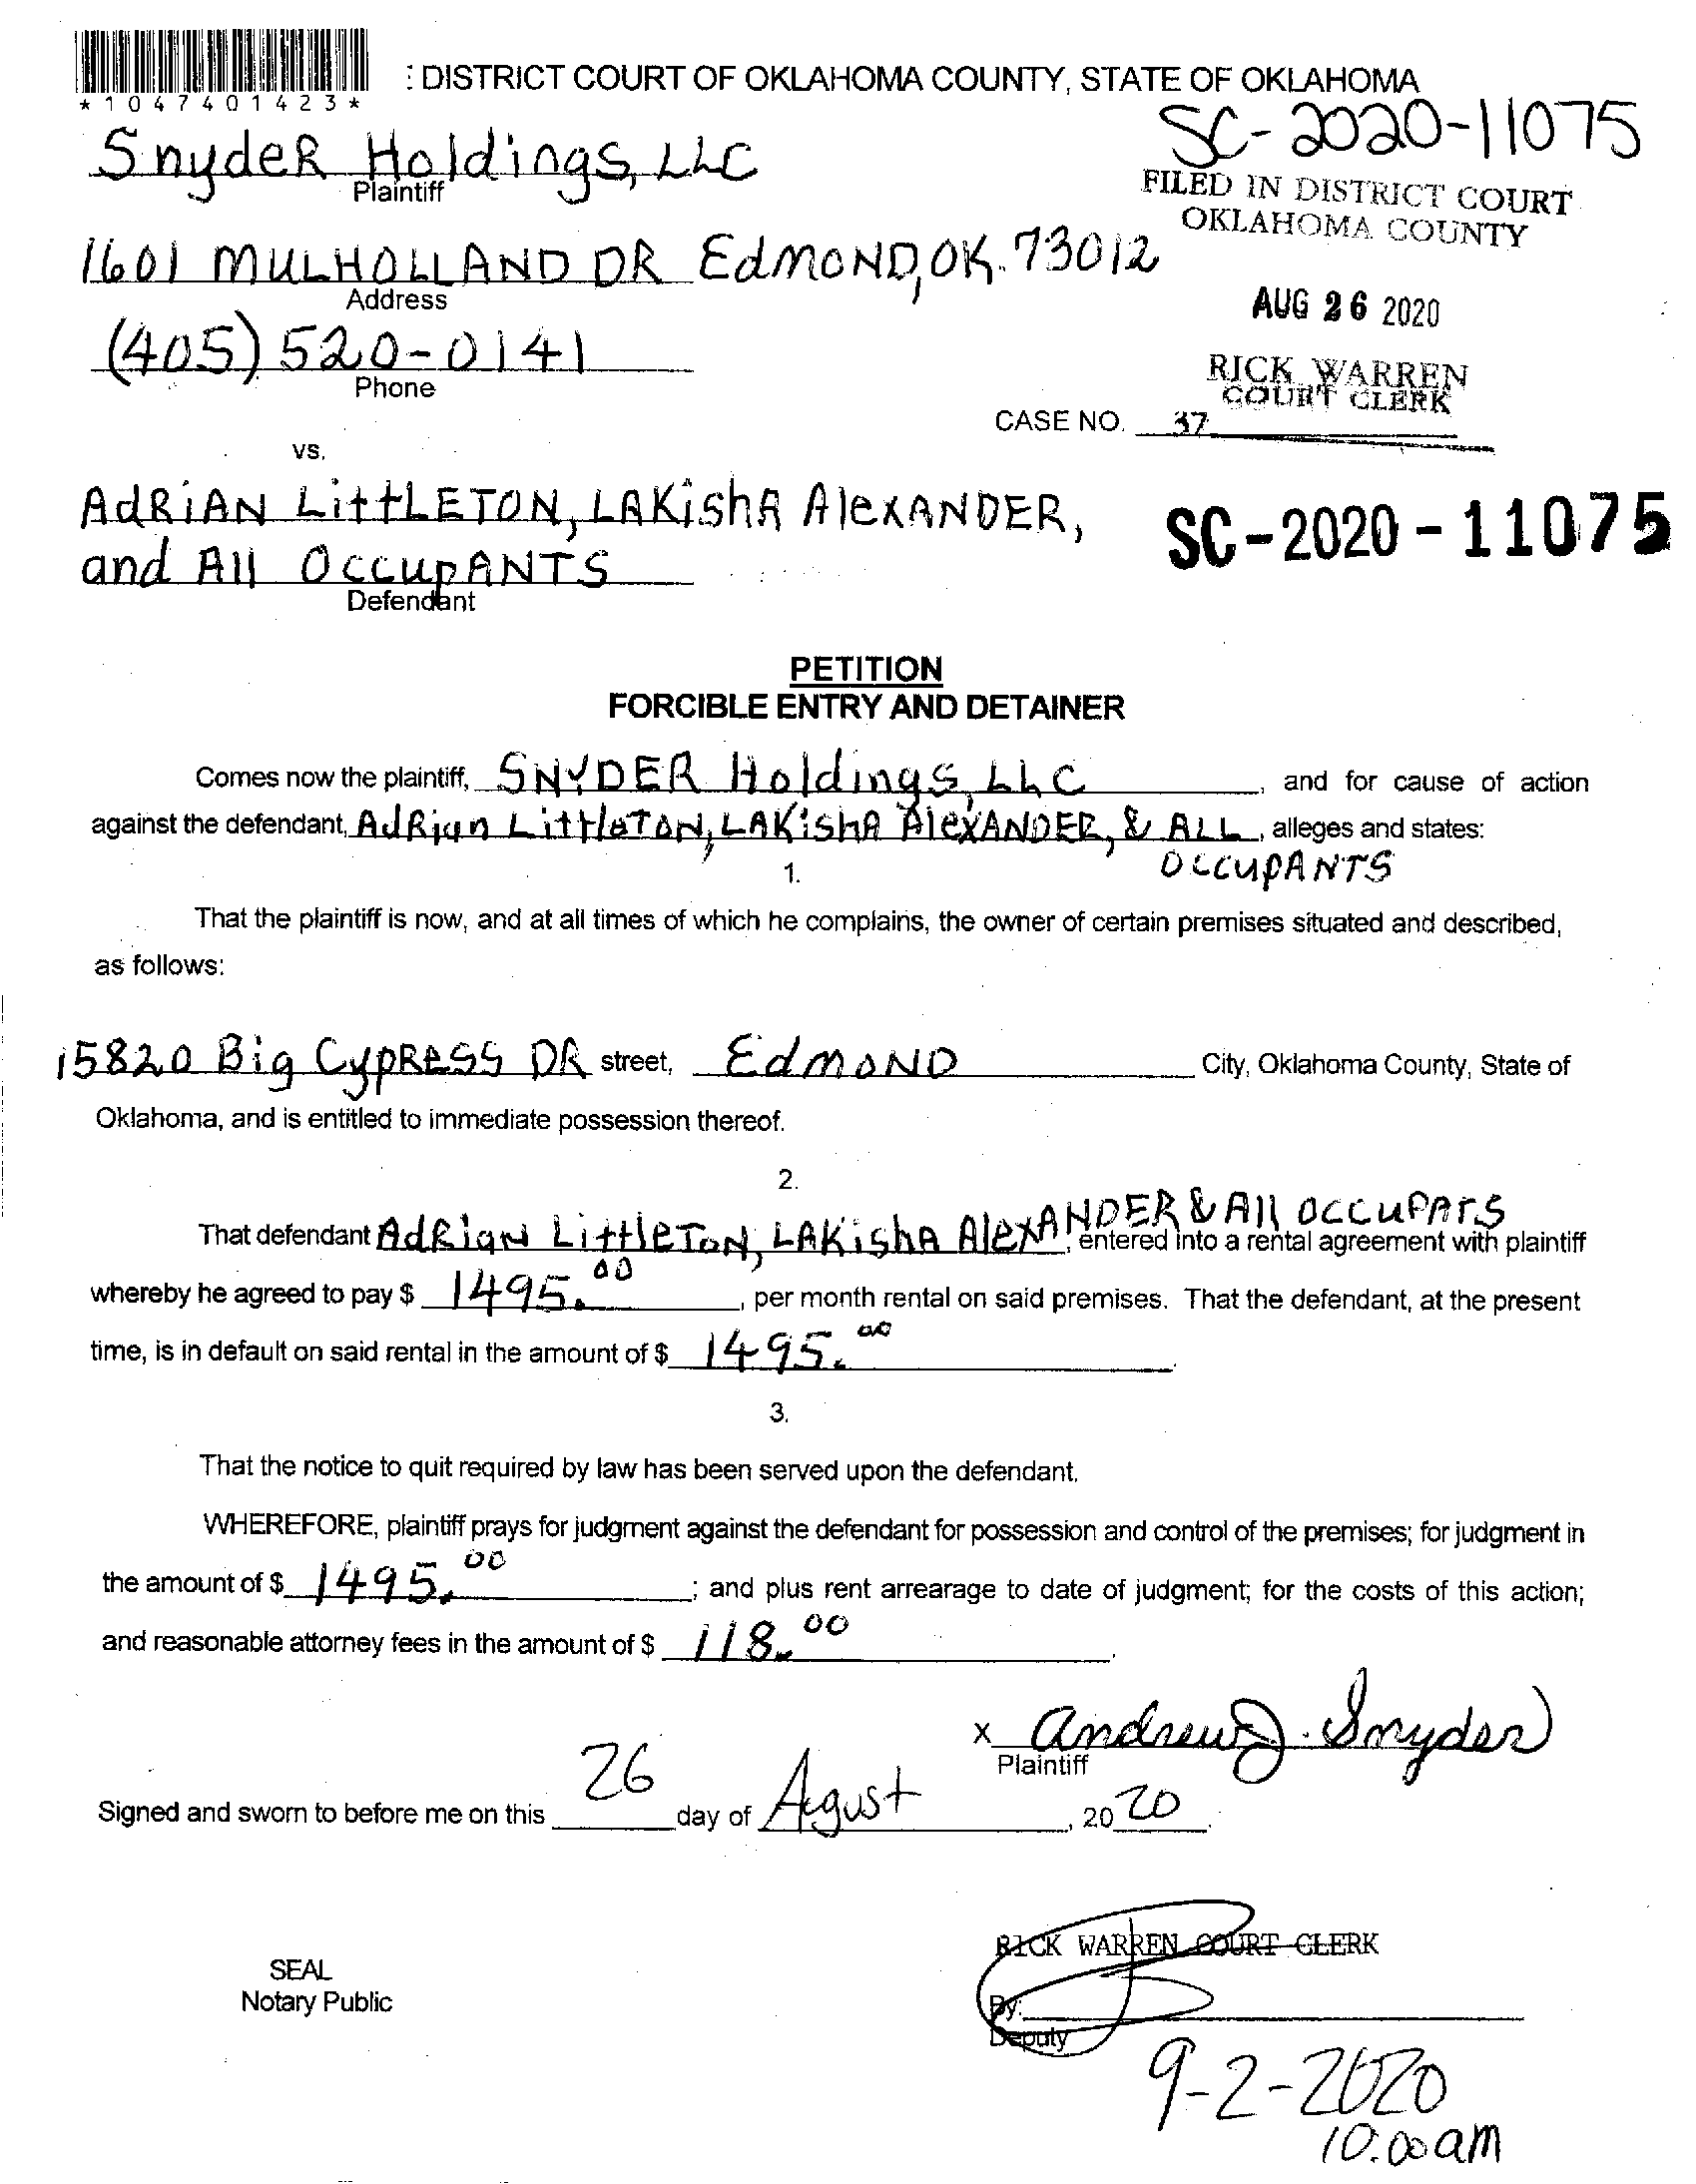 *1047401423*
: DISTRICT COURT OF OKLAHOMA COUNTY, STATE OF OKLAHOMA
SC-2020-11075
SnydeR Holdings, LLC
Plaintiff
FILED IN DISTRICT COURT
OKLAHOMA COUNTY
1601 MULHOLLAND DR EdMOND, OK. 73012
Address
AUG 26 2020
(405) 520-0141
Phone
RICK WARREN
COURT CLERK
CASE NO. 37
vs.
AdRiAN LittLETON, LAKishA AlexANDER,
and All OccupANTS
Defendant
SC-2020-11075
PETITION
FORCIBLE ENTRY AND DETAINER
Comes now the plaintiff, SNYDER Holdings, LLC, and for cause of action
against the defendant, AdRian LittleTON, LAKishA AlexANDER, & ALL, alleges and states:
OccupANTS
1.
That the plaintiff is now, and at all times of which he complains, the owner of certain premises situated and described,
as follows:
15820 Big CypRESS DR street, EdmOND City, Oklahoma County, State of
Oklahoma, and is entitled to immediate possession thereof.
2.
That defendant AdRiaN LittleTON, LAKishA AlexANDER & All OCCUPATS, entered into a rental agreement with plaintiff
whereby he agreed to pay $ 1495.00, per month rental on said premises. That the defendant, at the present
time, is in default on said rental in the amount of $ 1495.00.
3.
That the notice to quit required by law has been served upon the defendant.
WHEREFORE, plaintiff prays for judgment against the defendant for possession and control of the premises; for judgment in
the amount of $ 1495.00; and plus rent arrearage to date of judgment; for the costs of this action;
and reasonable attorney fees in the amount of $ 118.00.
x Andrew J. Snyder
Plaintiff
Signed and sworn to before me on this 26 day of Agust, 2020.
RICK WARREN COURT CLERK
SEAL
Notary Public
By:
Deputy
9-2-2020
10:00am